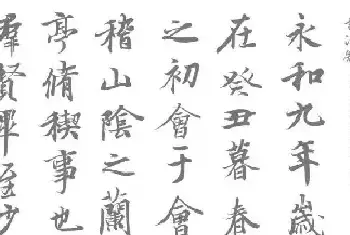 永和九年歲
在癸丑暮春
之初會于會
稽山陰之蘭
亭脩稧事也
群賢畢至少